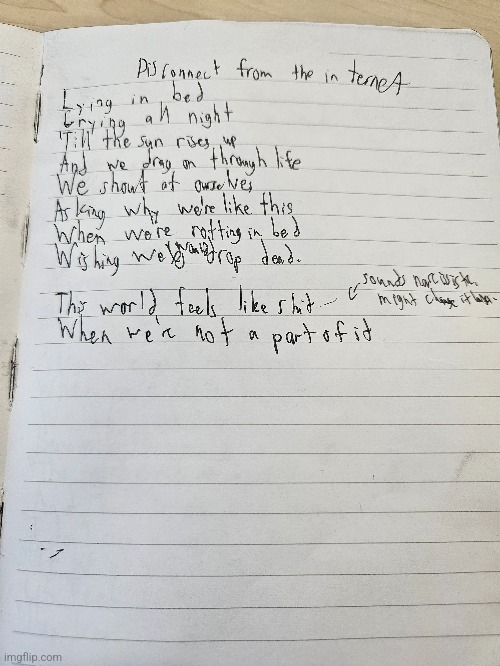 Disconnect from the internet
Lying in bed
Crying all night
Till the sun rises up
And we drag on through life
We shout at ourselves
Asking why we're like this
When we're rotting in bed
Wishing we drop dead.
This world feels like shit
sounds narcissistic
might change it
When we're not a part of it
imgflip.com